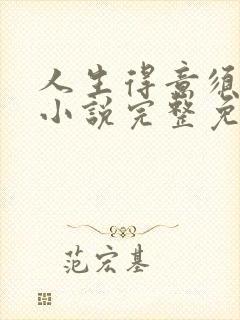 人生得意须
小说完整免
范宏基